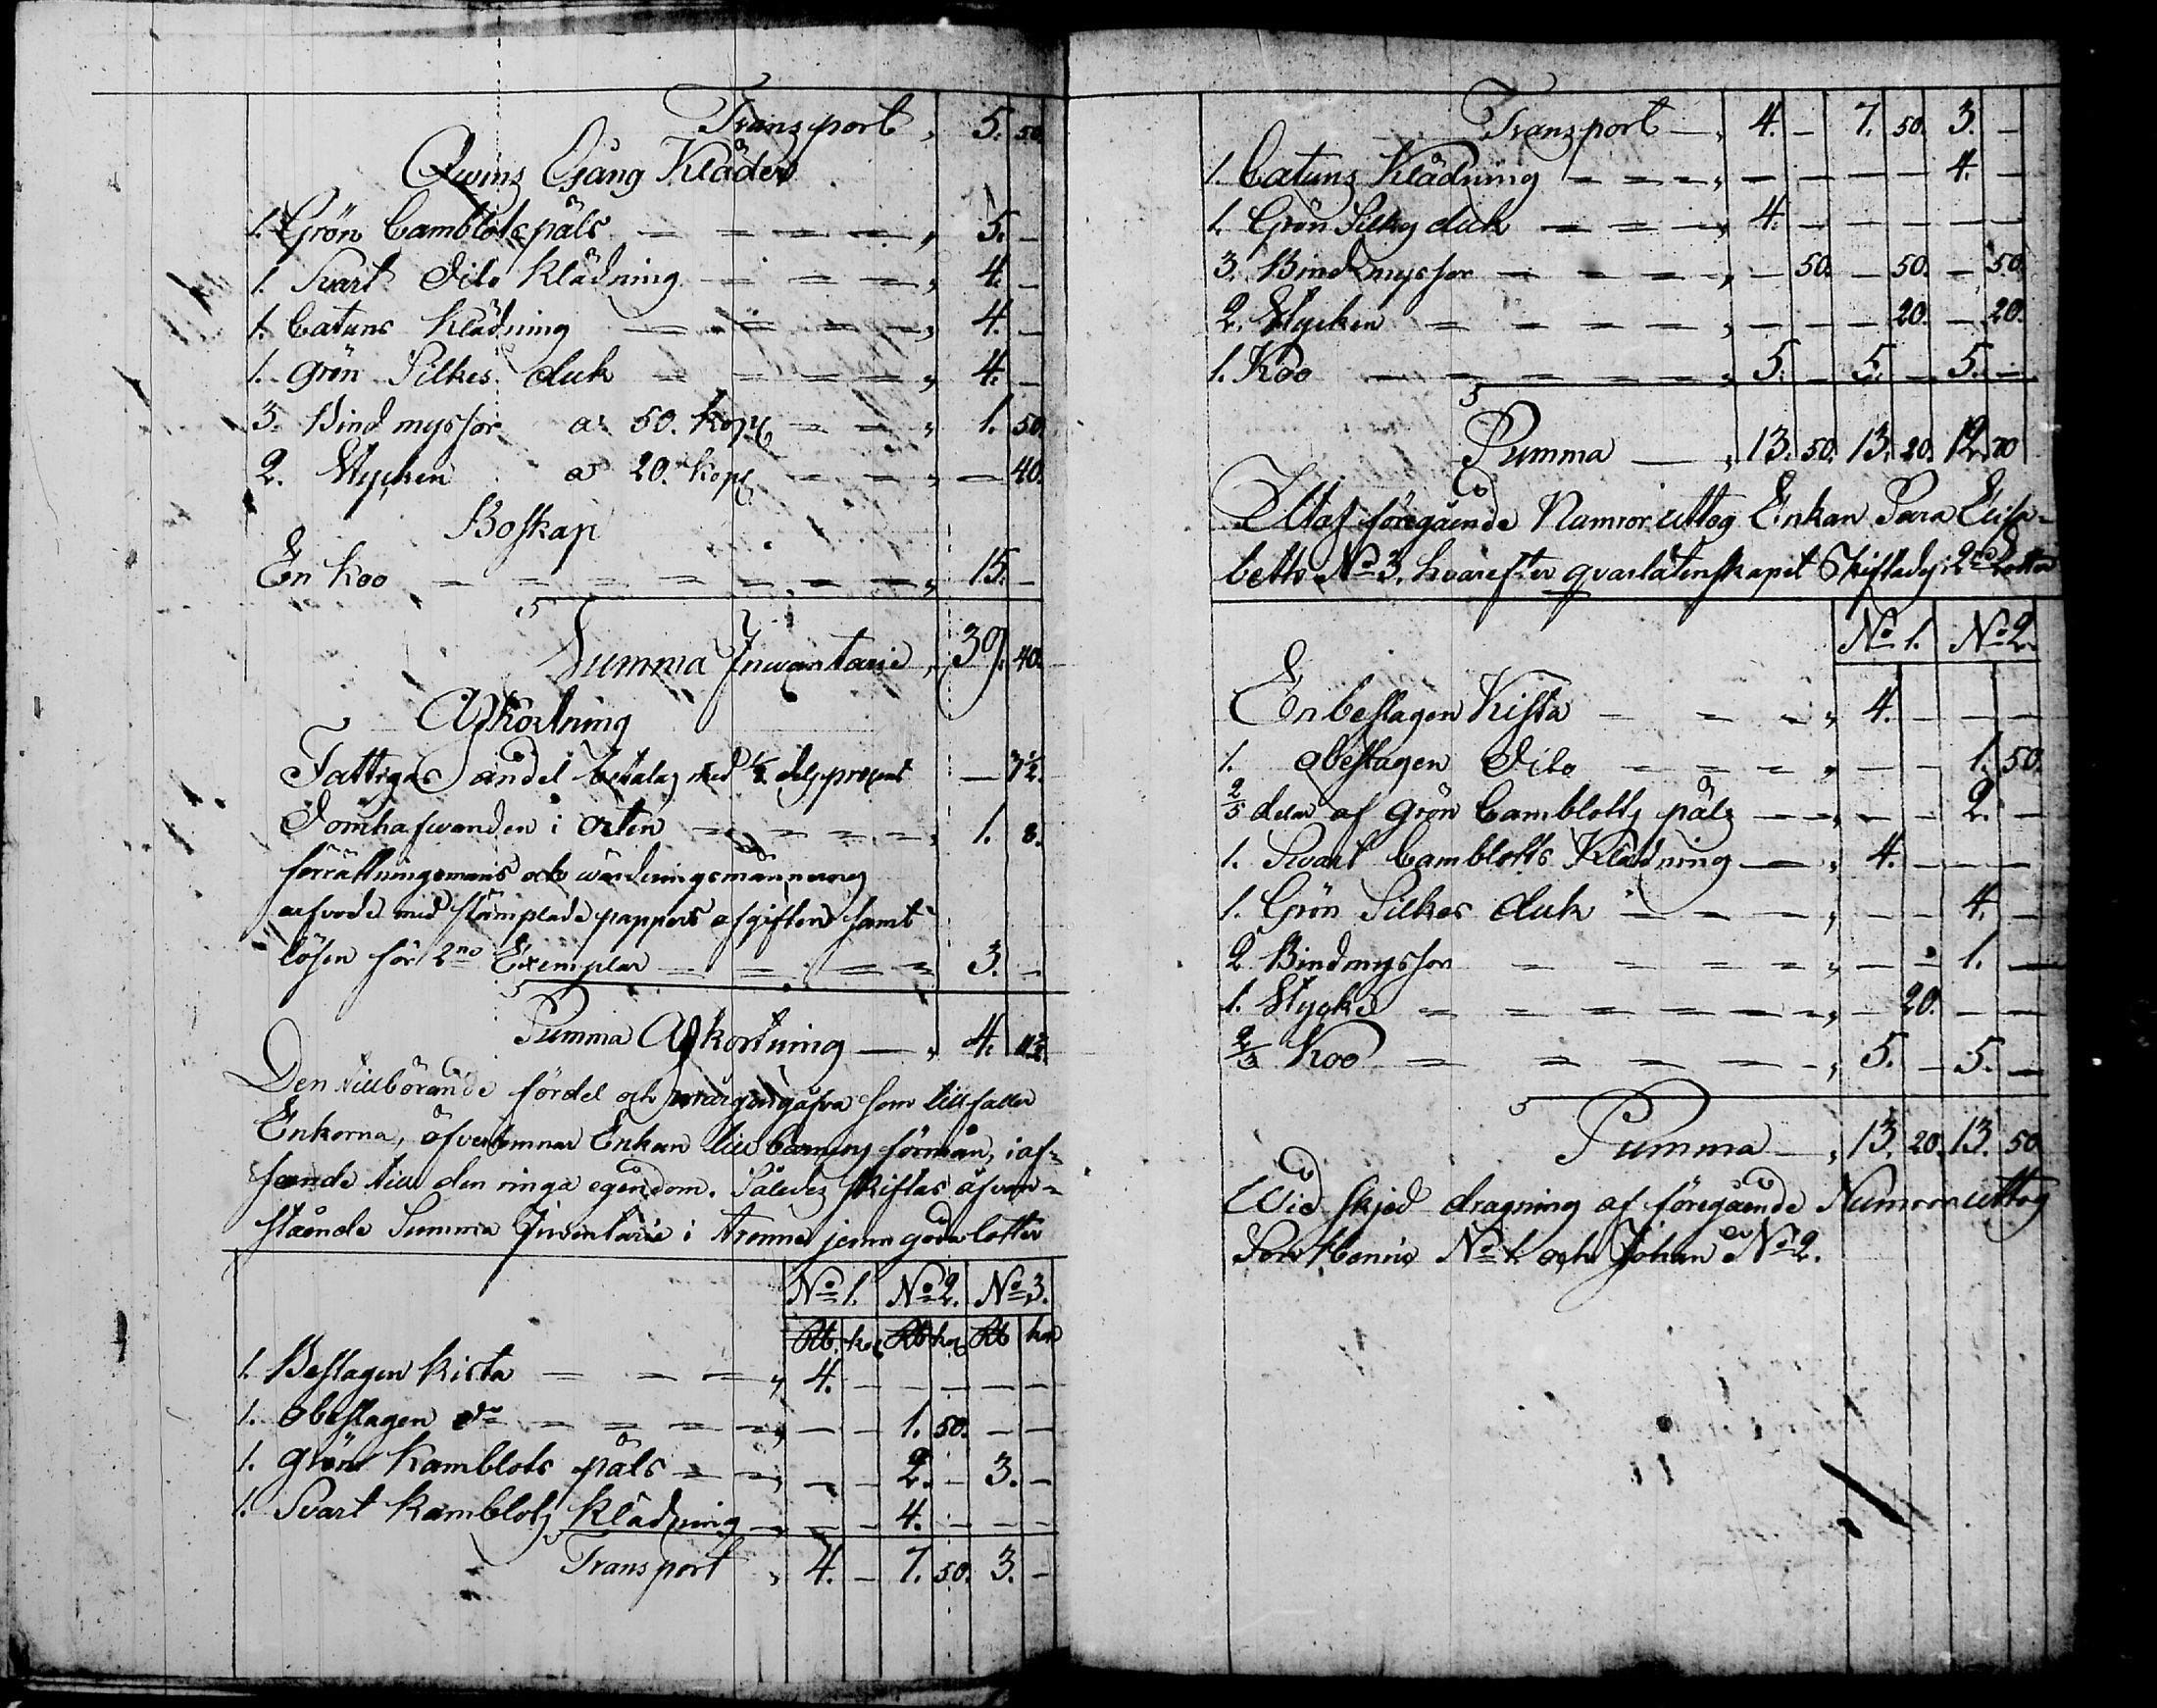 Transport „ 5. 50.
Qwins Gång Kläder
1. Grön Camblots päls — „ 5. —
1. Svart Dito Klädning — „ 4. —
1. Catuns Klädning — „ 4. —
1. grön Silkes duk — „ 4. —
3. Bind myssor a 50. kop — „ 1. 50.
2. Stycken a 20. kop — „ — 40.
Boskap
En koo — „ 15. —
Summa Inwantarie „ 39. 40.
Afkortning
Fattigas andel betalas med 1/8 dels procent — 7 1/2.
Domhafwanden i orten — „ 1. 8.
förrättningsmans och wärderingsmännernas
arfvode med stämplade pappers afgiften samt
lösen för 2ne Exemplar — 3. —
Summa Afkortning — „ 4.
Den tillbörande fördel och morgongåfva som tillfaller
Enkorna, öfverlemnar Enkan till barnens förmån, i af-
seende till den ringa egendom. Således skiftas ofvan-
stående Summa Inventarie i trenne jemn goda lotter
No 1. No 2. No 3.
Rb. kop Rb kop Rb kop
1. Beslagen kista — „ 4. — — — — —
1. obeslagen do — „ — — 1. 50. — —
1. grön Kamblots päls — „ — — 2. — 3. —
1. Svart Kamblots klädning — „ — — 4. — — —
Transport „ 4. — 7. 50. 3. —
Transport — „ 4. — 7. 50. 3. —
1. Catuns Klädning — „ — — — — 4. —
1. Grön Silkes duk — „ 4. — — — — —
3. Bindmyssor — „ — 50. — 50. — 50.
2. Stycken — „ — — — 20. — 20.
1. Koo — „ 5. — 5. — 5. —
Summa — „ 13. 50. 13. 20. 12. 70
Utaf föregående Numror uttog Enkan Sara Elisa-
betts No 3. hvarefter qvarlåtenskapet Skiftades i 2ne Lotter
No 1. No 2.
En beslagen Kista — „ 4. — — —
1. obeslagen Dito — „ — — 1. 50.
2/5 delar af grön Camblotts päls — „ — — 2. —
1. Svart Camblotts Klädning — „ 4. — — —
1. Grön Silkes duk — „ — — 4. —
2 Bindmyssor — „ — — 1. —
1. Stycke — „ — 20. — —
2/3 Koo — „ 5. — 5. —
Summa — „ 13. 20. 13. 50
Wid skjed dragning af föregående Numror uttog
Son No 1. och Johan No 2.